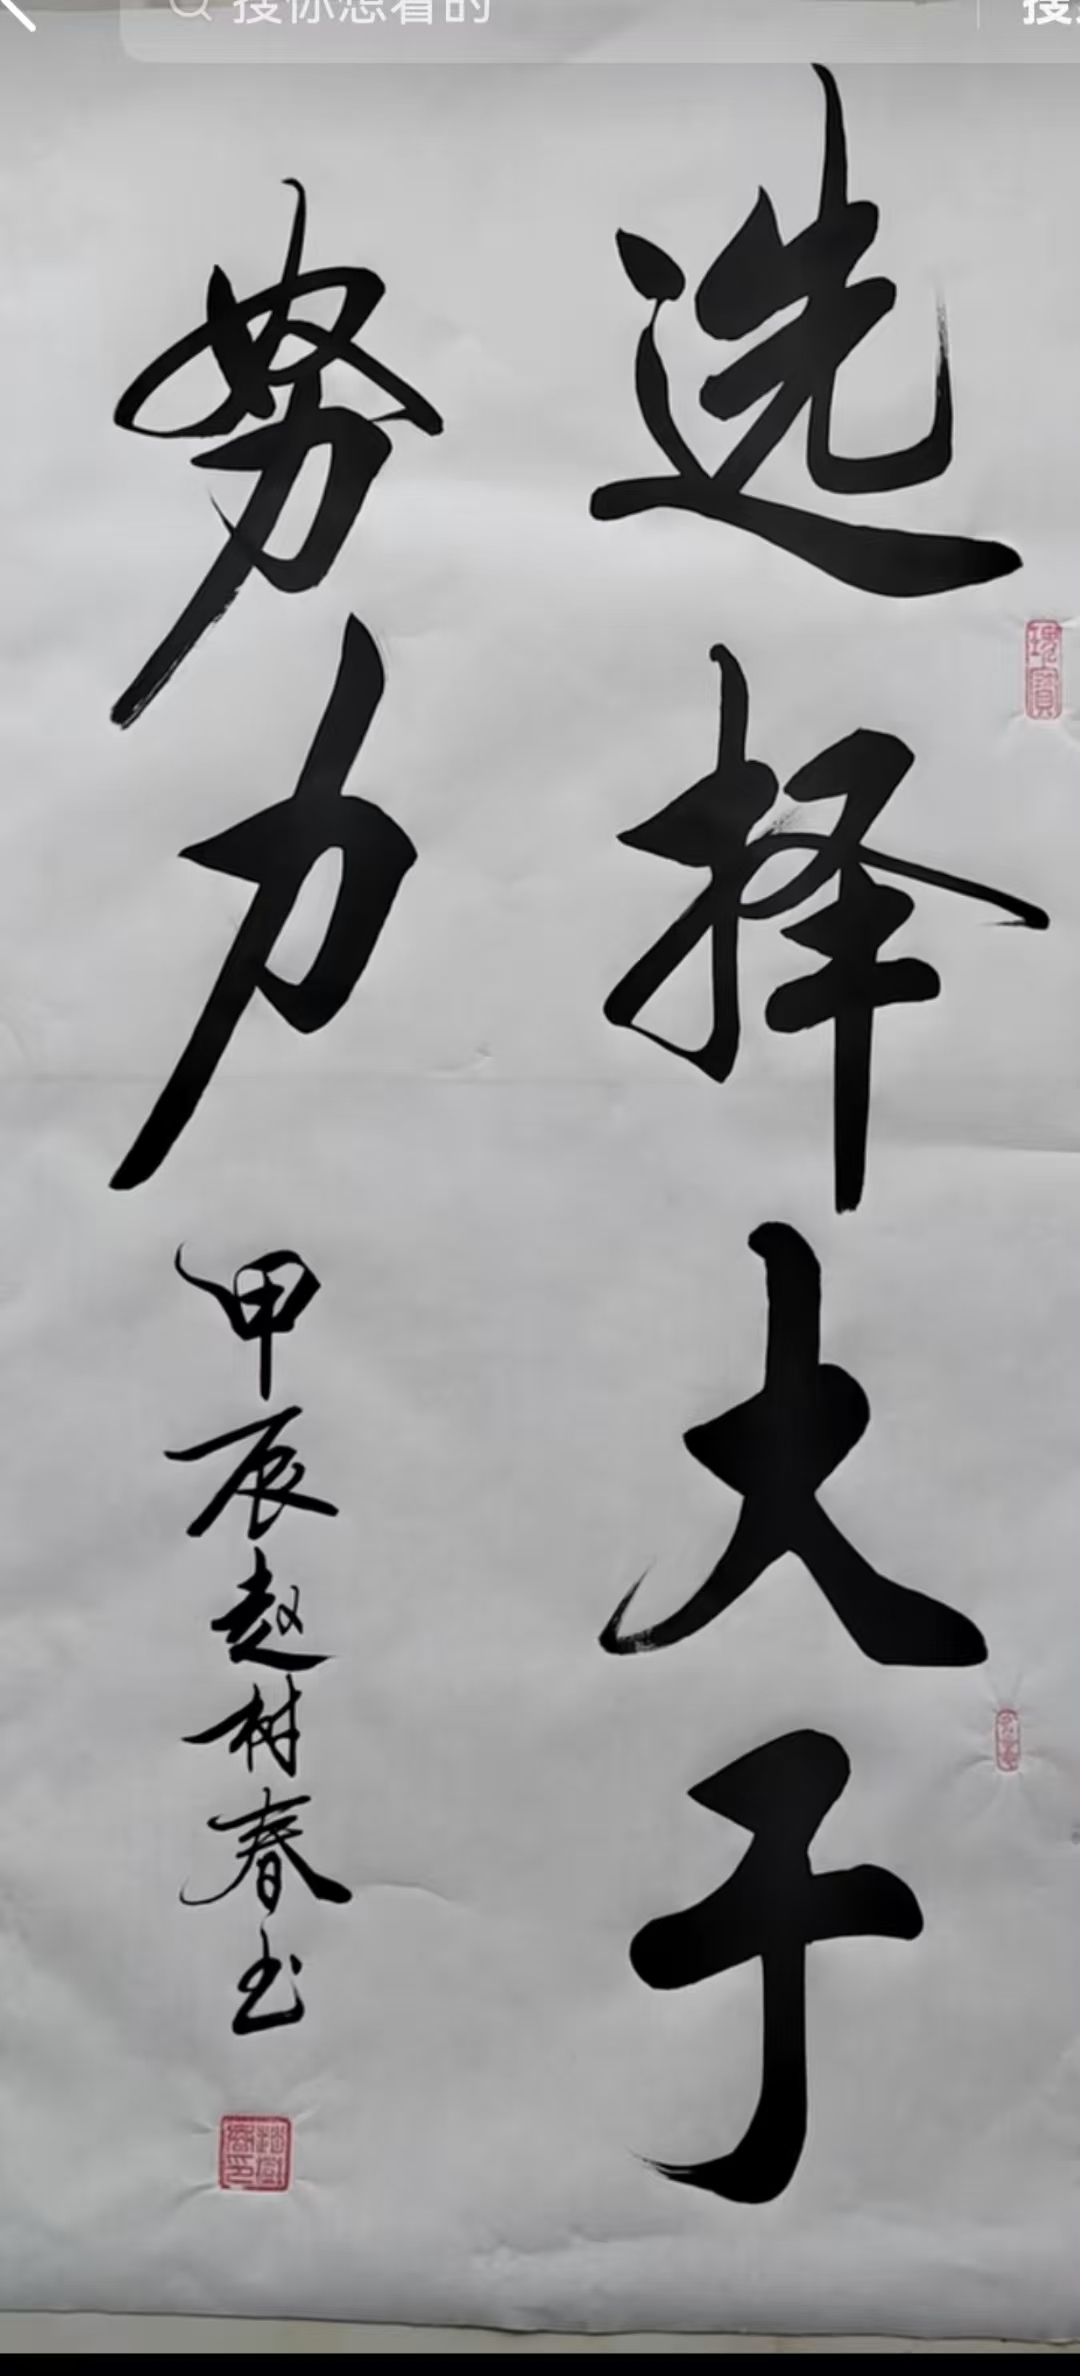 搜你想看的
选择大于
努力
甲辰赵树春书